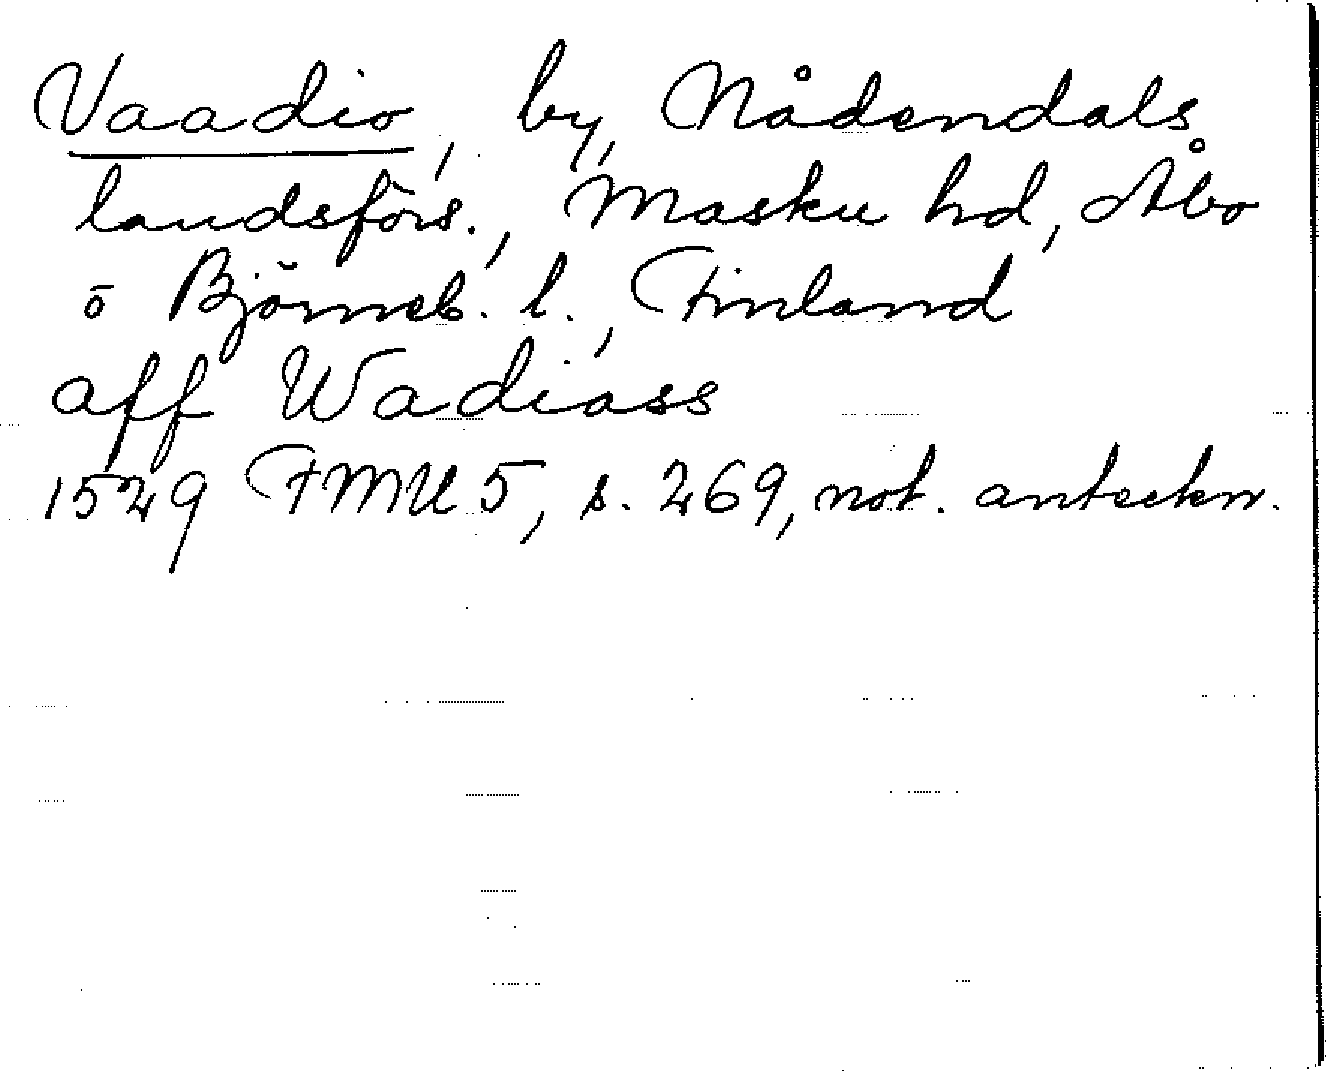 Vaadio, by, Nådendals
landsförs., Masku hd, Åbo
o Björneb. l., Finland
aff Wadiass
1529 FMU 5, s. 269, not. anteckn.